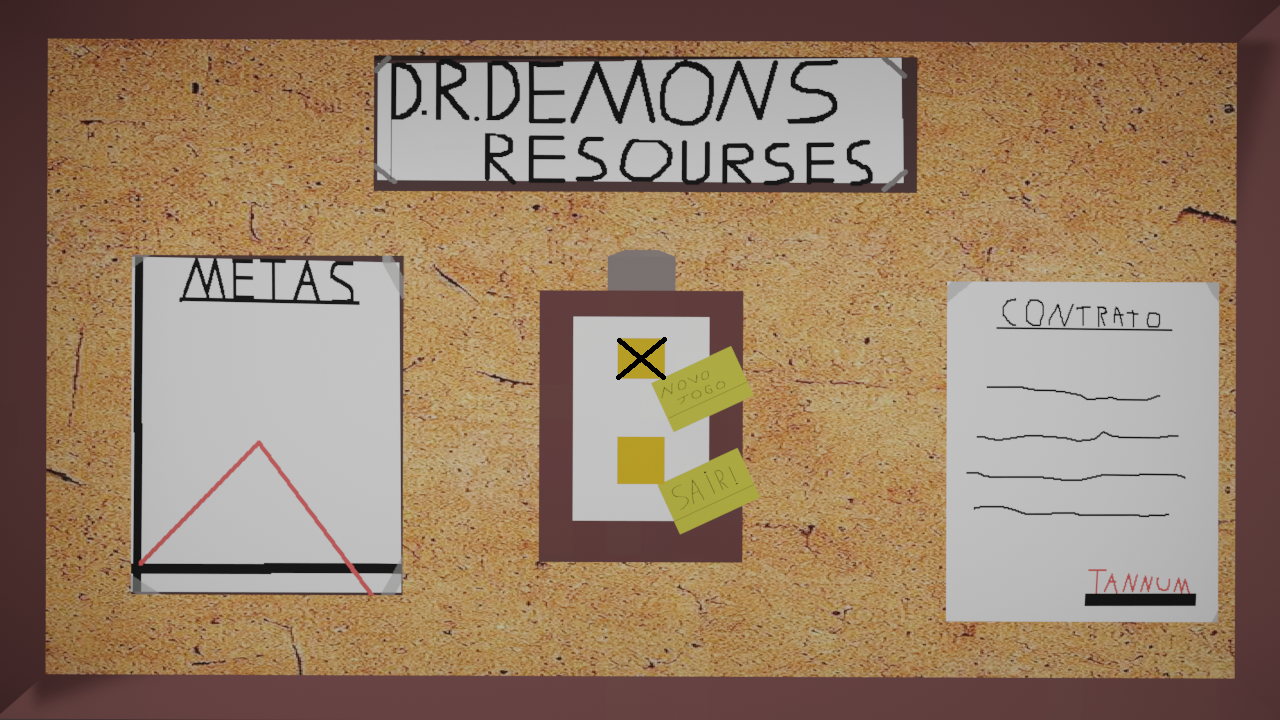 D.R.DEMONS
RESOURSES
METAS
NOVO
JOGO
SAIR!
CONTRATO
TANNUM